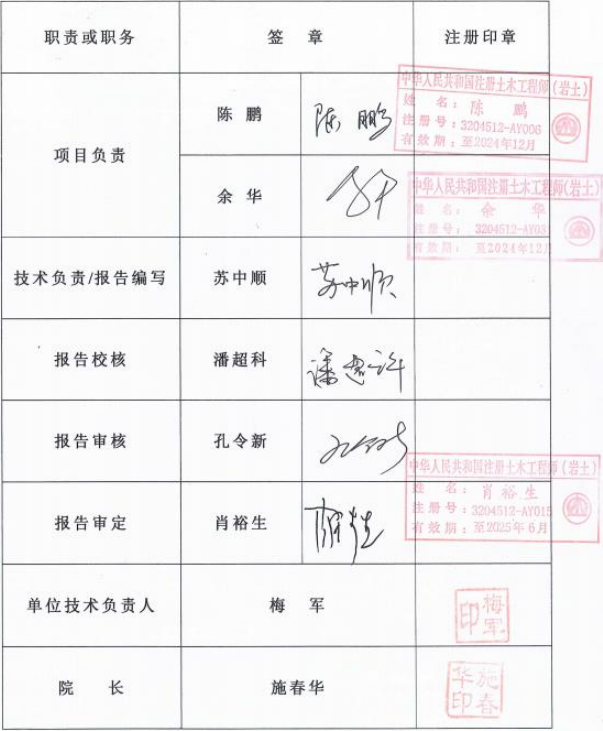 职责或职务 签 章 注册印章
项目负责
陈 鹏 陈鹏
中华人民共和国注册土木工程师(岩土)
姓 名: 陈 鹏
注册号: 3204512-AY006
有效期: 至2024年12月
余 华
中华人民共和国注册土木工程师(岩土)
姓 名: 余 华
注册号: 3204512-AY03
有效期: 至2024年12月
技术负责/报告编写 苏中顺 苏中顺
报告校核 潘超科
报告审核 孔令新
中华人民共和国注册土木工程师(岩土)
姓 名: 肖裕生
注册号: 3204512-AY015
有效期: 至2025年6月
报告审定 肖裕生
单位技术负责人 梅 军
梅军印
院 长 施春华
施春华印